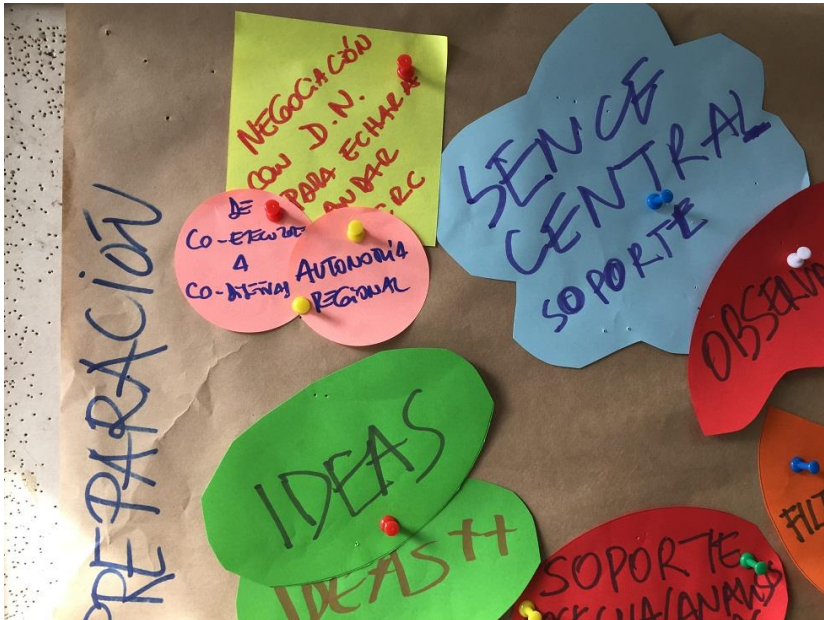 PREPARACIÓN
NEGOCIACIÓN
CON D.N.
PARA ECHAR A
ANDAR
CRC
DE
CO-EJECUTOR
A
AUTONOMÍA
REGIONAL
SENCE
CENTRAL
SOPORTE
IDEAS
IDEAS ++
SOPORTE